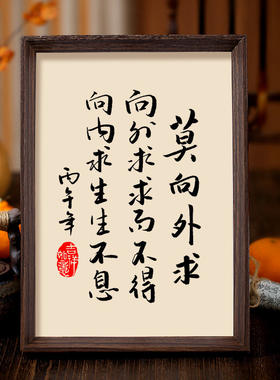 莫向外求
向外求求而不得
向内求生生不息
丙午年
吉祥如意